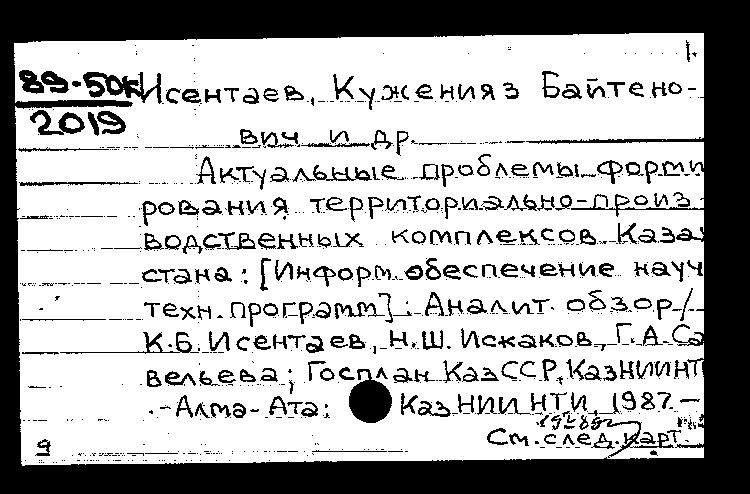 1.
89-50к Исентаев, Куженияз Байтено-
2019
вич и др.
Актуальные проблемы форми
рования территориально-произ-
водственных комплексов Казах
стана: [Информ. обеспечение науч
техн. программ]: Аналит. обзор/
К.Б.Исентаев, Н.Ш.Искаков, Г.А.Са
вельева; Госплан КазССР, КазНИИНТИ
.-Алма-Ата: КазНИИНТИ, 1987.-
См. след. карт.
9